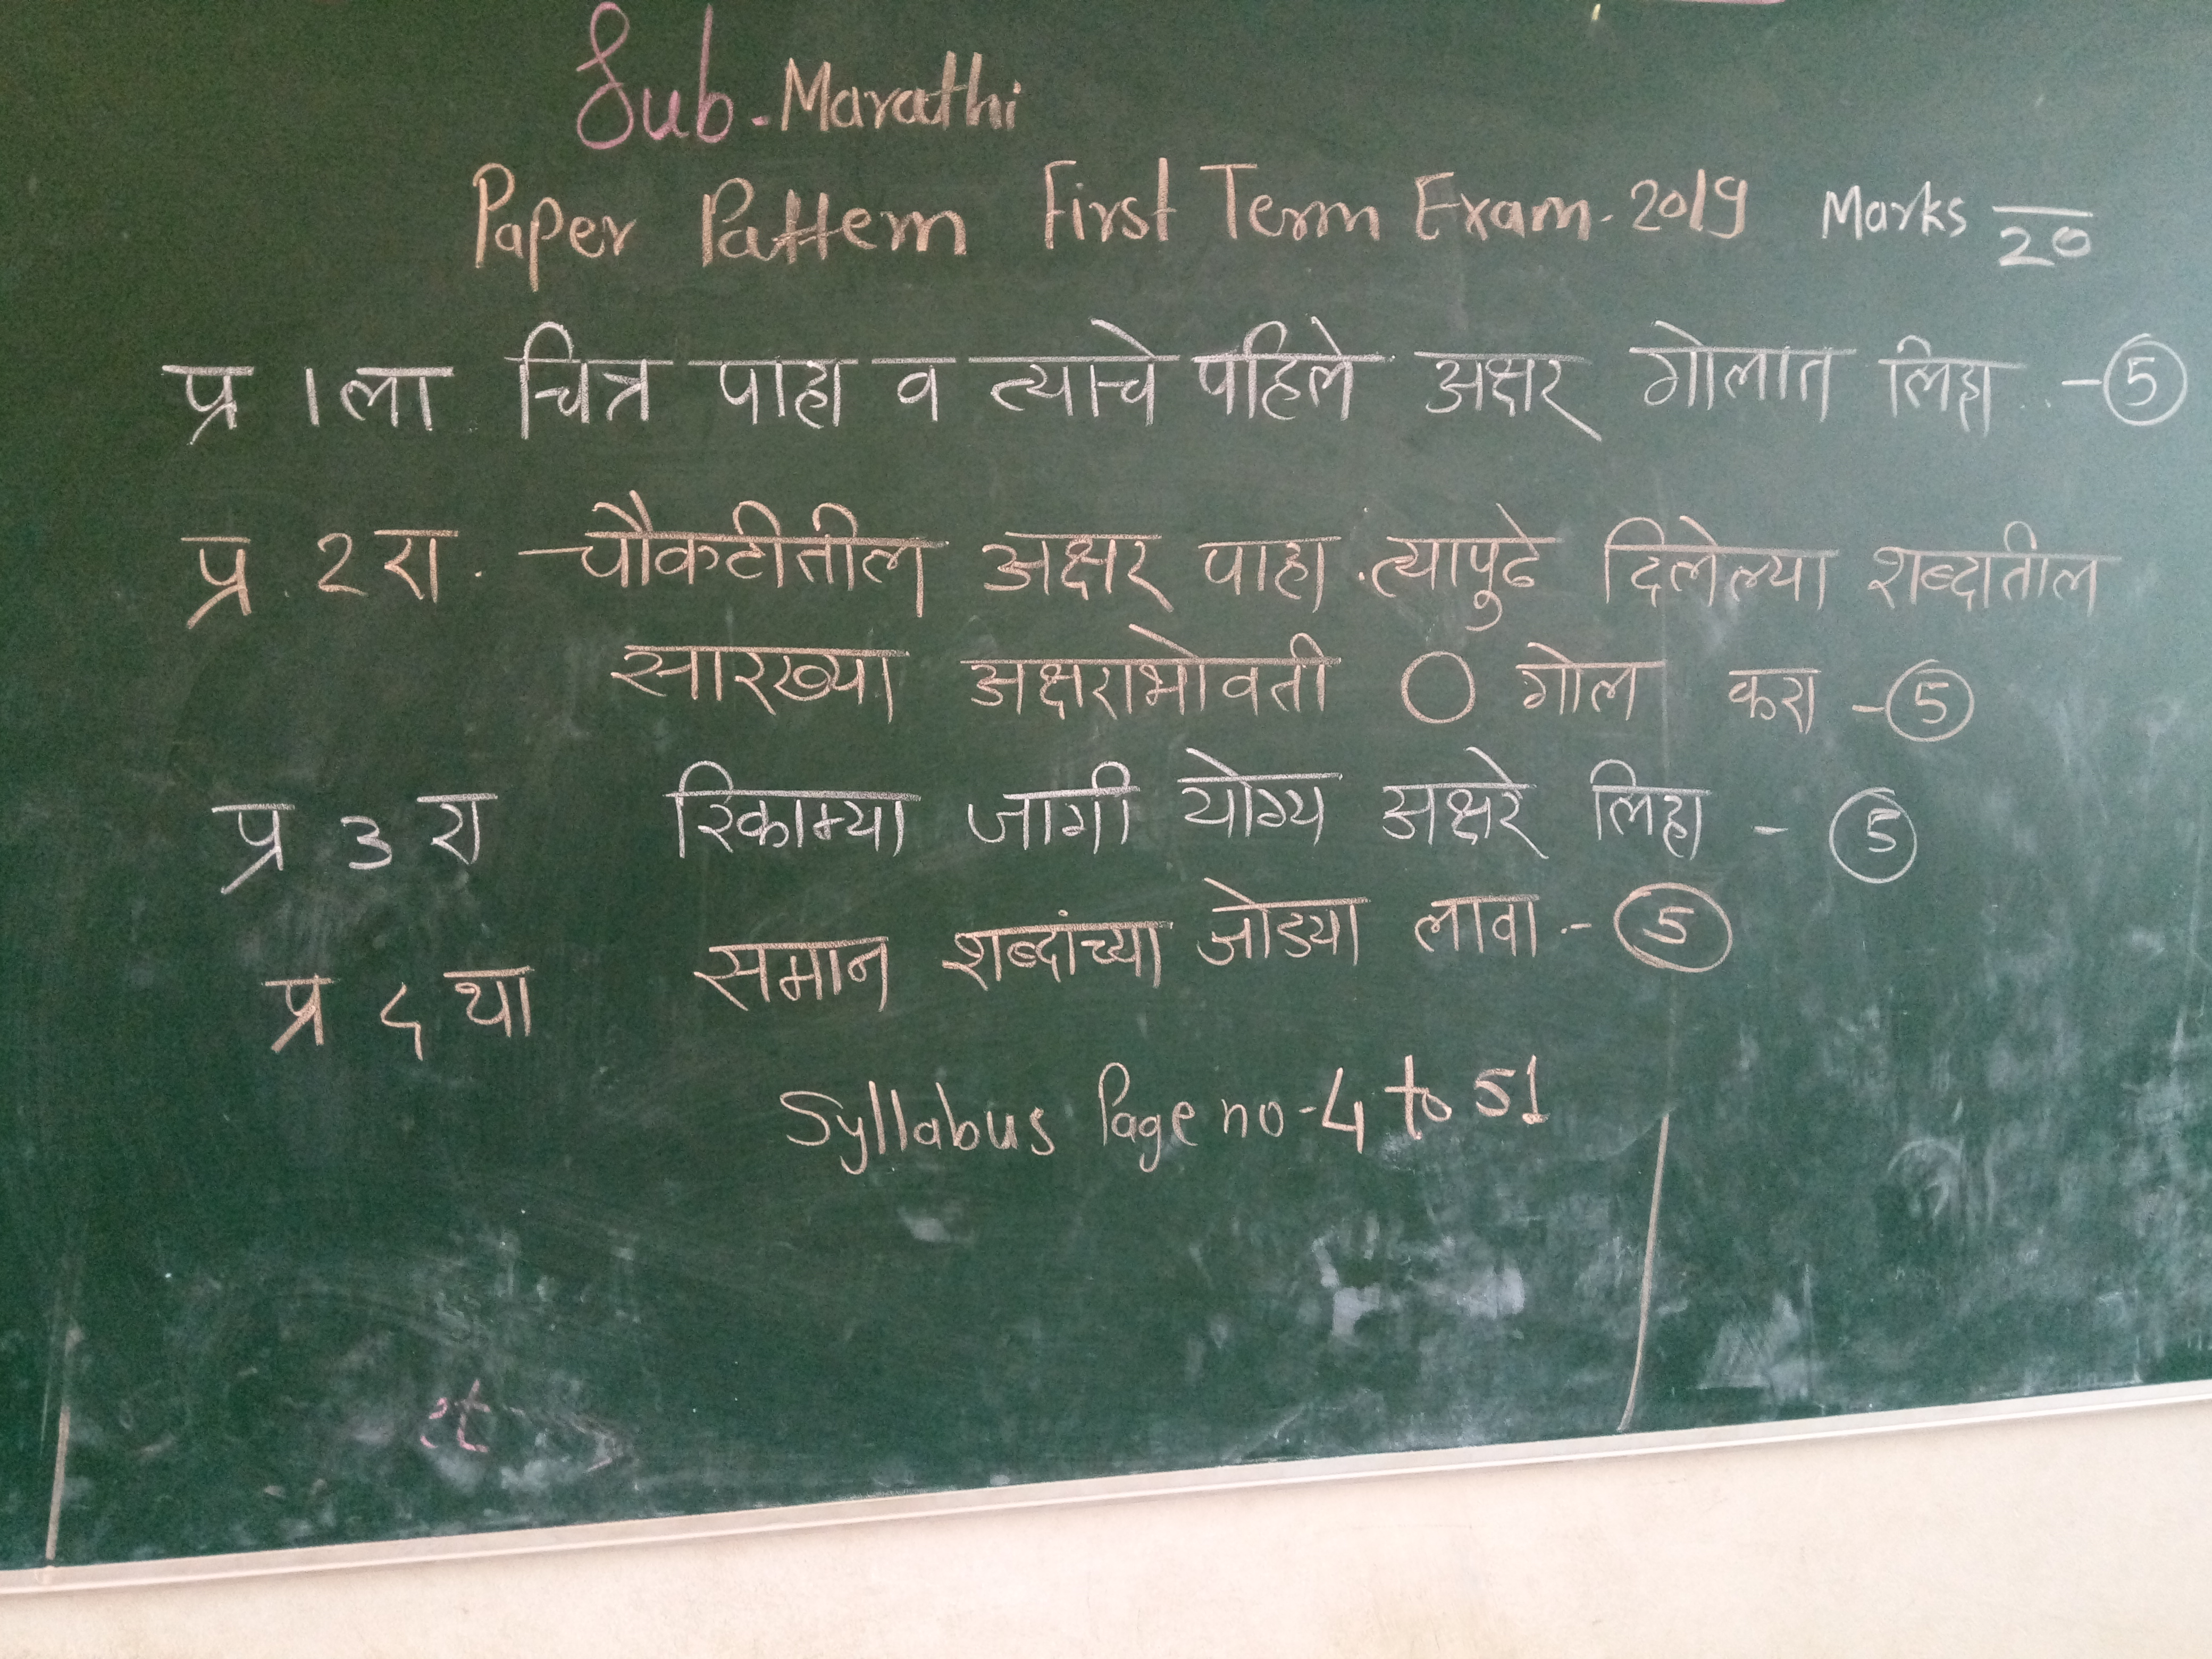 Sub.-Marathi
Paper Pattern First Term Exam-2019 Marks 20
प्र 1ला चित्र पाहा व त्याचे पहिले अक्षर गोलात लिहा -5
प्र 2 रा. चौकटीतील अक्षर पाहा. त्यापुढे दिलेल्या शब्दातील
सारख्या अक्षराभोवती O गोल करा -5
प्र 3 रा रिकाम्या जागी योग्य अक्षरे लिहा - 5
प्र ८ था समान शब्दांच्या जोड्या लावा.- 5
Syllabus Page no-4 to 51